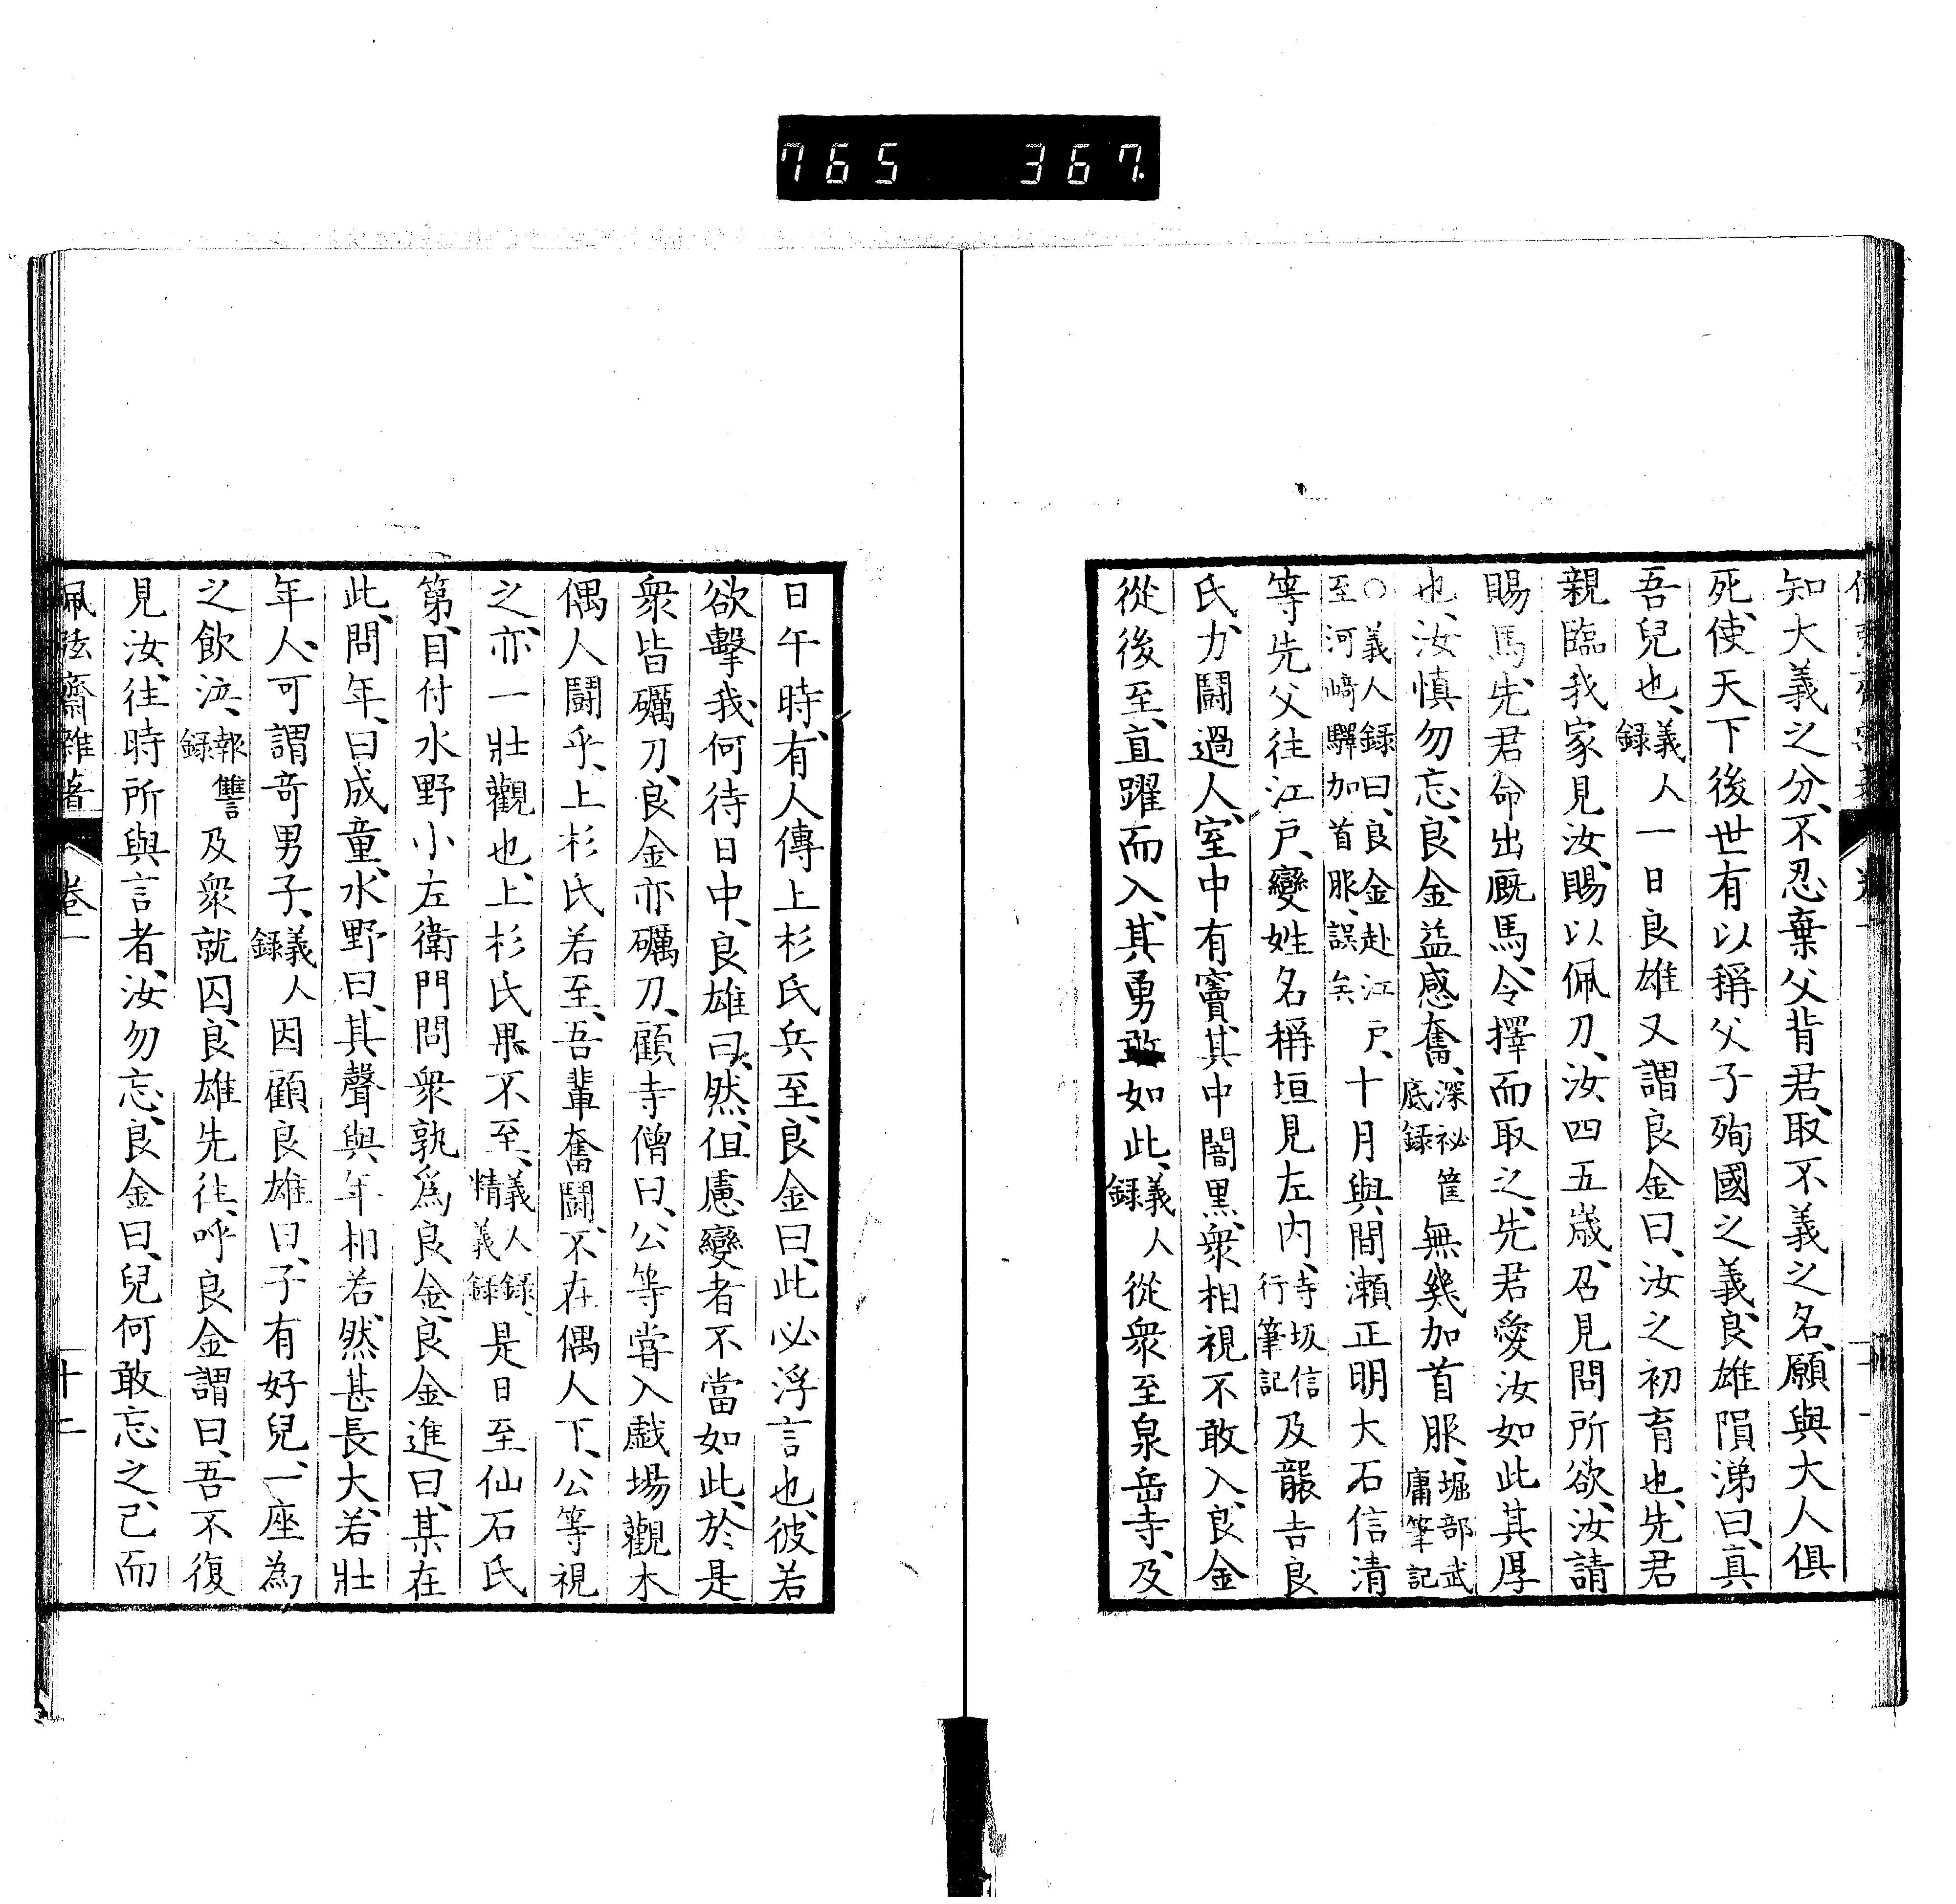 765 367.
知大義之分、不忍棄父背君、取不義之名、願與大人俱
死、使天下後世有以稱父子殉國之義、良雄隕涕曰、真
吾兒也、義人錄 一日良雄又謂良金曰、汝之初育也、先君
親臨我家見汝、賜以佩刀、汝四五歲、召見問所欲、汝請
賜馬、先君命出廐馬、令擇而取之、先君愛汝如此其厚
也、汝慎勿忘、良金益感奮、深祕筐底錄 無幾加首服、堀部武庸筆記
○義人錄曰、良金赴江戶、至河崎驛加首服、誤矣 十月與間瀨正明大石信清
等先父往江戶、變姓名稱垣見左內、寺坂信行筆記 及襲吉良
氏、力鬪過人、室中有竇、其中闇黑、衆相視不敢入、良金
從後至、直躍而入、其勇敢如此、義人錄 從衆至泉岳寺、及
日午時、有人傳上杉氏兵至、良金曰、此必浮言也、彼若
欲擊我、何待日中、良雄曰、然、但慮變者不當如此、於是
衆皆礪刀、良金亦礪刀、顧寺僧曰、公等嘗入戲場觀木
偶人鬪乎、上杉氏若至、吾輩奮鬪、不在偶人下、公等視
之、亦一壯觀也、上杉氏果不至、義人錄、精義錄 是日至仙石氏
第、目付水野小左衛門問衆孰爲良金、良金進曰、某在
此、問年、曰成童、水野曰、其聲與年相若、然甚長大、若壯
年人、可謂奇男子、義人錄 因顧良雄曰、子有好兒、一座為
之飲泣、報讐錄 及衆就囚、良雄先往、呼良金謂曰、吾不復
見汝、往時所與言者、汝勿忘、良金曰、兒何敢忘之、已而
佩弦齋雜著 卷一 十二